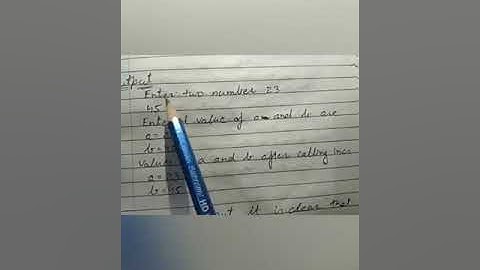 utput
Enter two number 23
45
Entered value of a and b are
a = 2
b =
Value a and b after calling incr
a = 23
b = 45
out it is clear that
HD